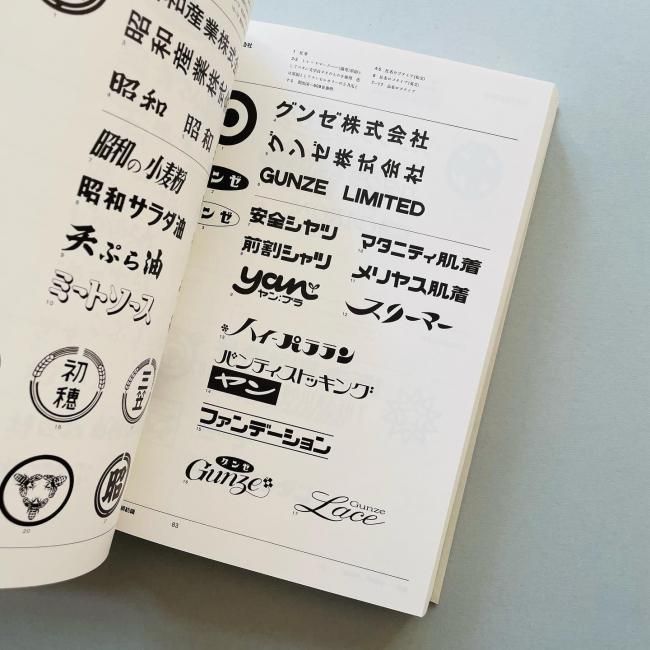 昭和産業株式
昭和産業株式
昭和
昭和
昭和の小麦粉
昭和サラダ油
天ぷら油
ミートソース
初穂
三笠
昭
グンゼ株式会社
グンゼ株式会社
GUNZE LIMITED
ンゼ
ンゼ
安全シャツ
前割シャツ
yan
ヤン・プラ
マタニティ肌着
メリヤス肌着
スリーマー
ハイ・パラランン
パンティストッキング
ヤン
ファンデーション
グンゼ
Gunze
Gunze
Lace
83